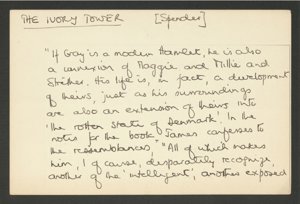 THE IVORY TOWER [Spender]
"If Gray is a modern Hamlet, he is also
a conversion of Maggie and Millie and
Strether. His life is, in fact, a development
of theirs, just as his surroundings
are also an extension of theirs into
'the rotten state of Denmark'. In the
notes for the book James confesses to
the resemblances, "All of which makes
him, I of course, desperately recognize,
another of the 'intelligent', another exposed